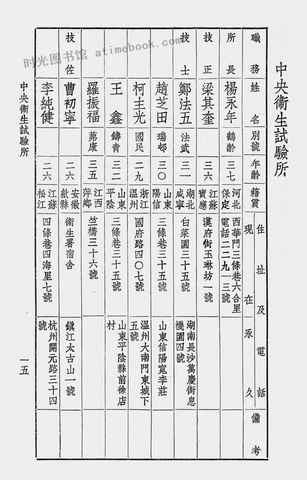 时光图书馆 atimebook.com
中央衛生試驗所
職務 姓名 別號 年齡 籍貫 住址及電話 現在 永久 備考
所長 楊永年 鶴齡 三七 河北保定 西華門三條巷六合里 電話二二九一三號
技正 梁其奎 三六 江蘇寶應 漢府街玉琳坊一號
技士 鄭法五 法武 三一 湖北咸寧 白菜園三十五號 湖南長沙萬慶街息機園四號
趙芝田 瑞邨 三〇 山東陽信 三條巷三十五號 山東信陽寬李莊
柯圭光 國民 二九 浙江溫州 國府路四〇七號 溫州大南門東城下五號
王鑫 鑄青 三二 山東平陰 三條巷三十五號 山東平陰縣前徐店村
羅振福 茀康 三五 江西萍鄉 竺橋三十六號
技佐 曹初寧 二六 安徽歙縣 衛生署宿舍 鎮江太古山一號
李純健 二六 江蘇松江 四條巷四海里七號 杭州開元路三十四號
中央衛生試驗所
一五